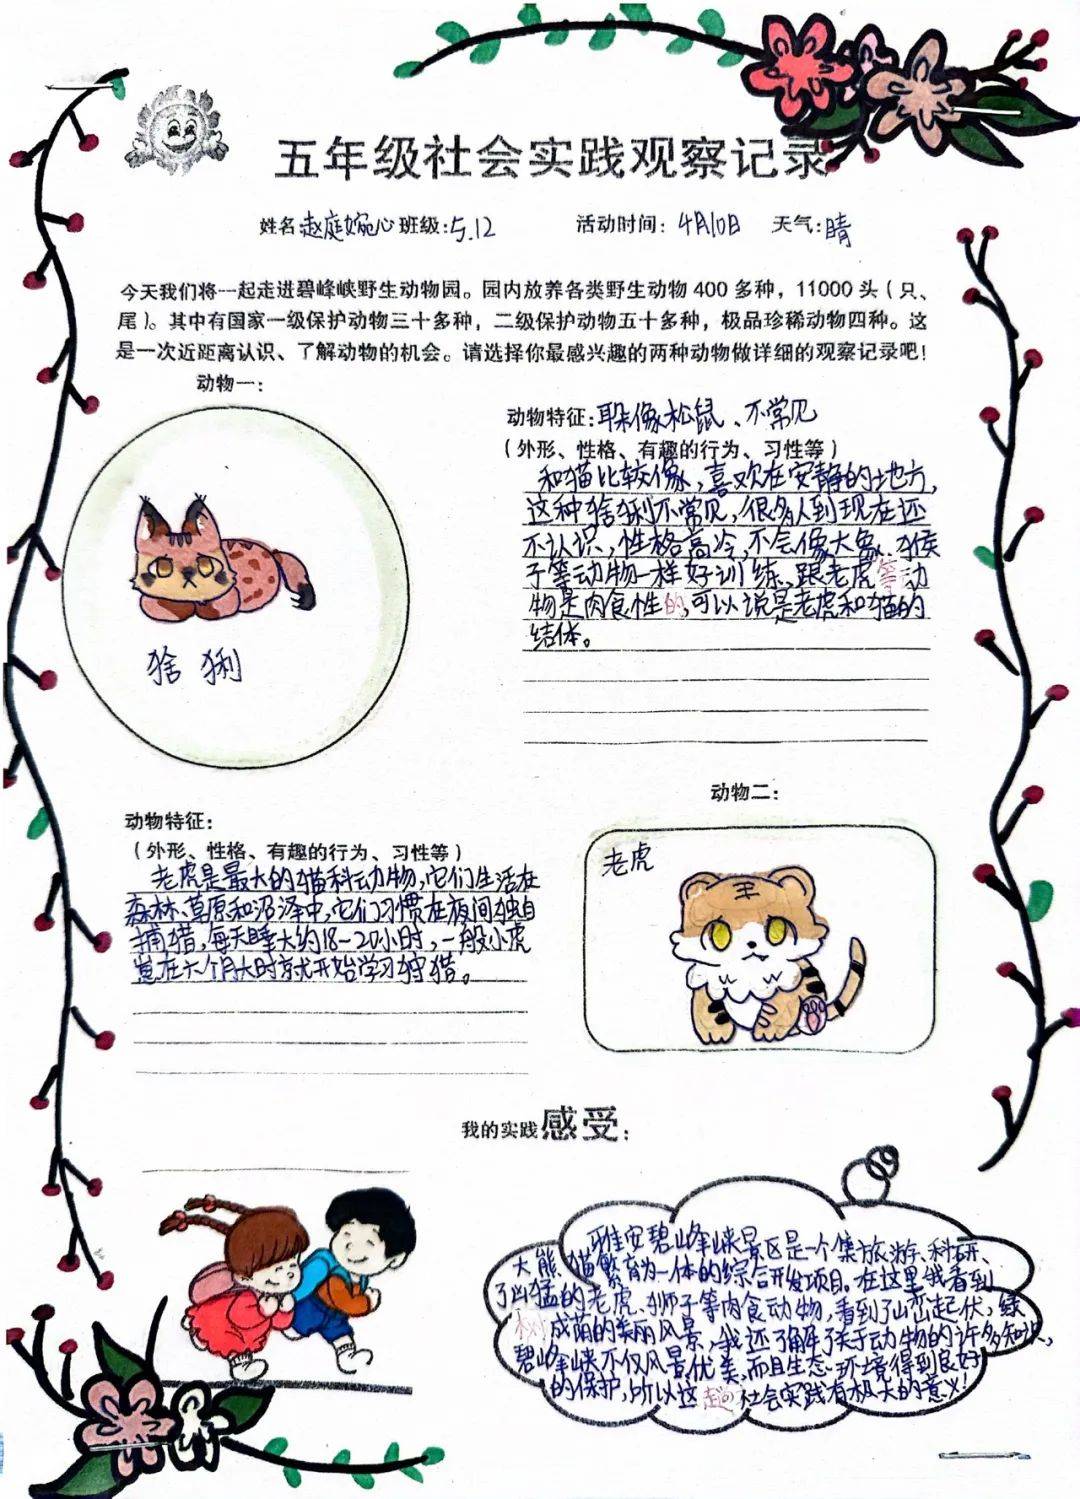 五年级社会实践观察记录
姓名:赵庭婉心 班级:5.12 活动时间:4月10日 天气:晴
今天我们将一起走进碧峰峡野生动物园。园内放养各类野生动物400多种，11000头（只、
尾）。其中有国家一级保护动物三十多种，二级保护动物五十多种，极品珍稀动物四种。这
是一次近距离认识、了解动物的机会。请选择你最感兴趣的两种动物做详细的观察记录吧！
动物一：
猞猁
动物特征:耳朵像松鼠、不常见
（外形、性格、有趣的行为、习性等）
和猫比较像,喜欢在安静的地方,
这种猞猁不常见,很多人到现在还
不认识,性格高冷,不会像大象、猴
子等动物一样好训练,跟老虎等动
物是肉食性的,可以说是老虎和猫的
结体。
动物二：
老虎
动物特征：
（外形、性格、有趣的行为、习性等）
老虎是最大的猫科动物,它们生活在
森林、草原和沼泽中,它们习惯在夜间独自
捕猎,每天睡大约18-20小时,一般小虎
崽在六个月大时就开始学习狩猎。
我的实践感受：
雅安碧峰峡景区是一个集旅游、科研、
大熊猫繁育为一体的综合开发项目。在这里我看到
了凶猛的老虎、狮子等肉食动物,看到了山峦起伏,绿
树成荫的美丽风景,我还了解了关于动物的许多知识,
碧峰峡不仅风景优美,而且生态环境得到良好
的保护,所以这趟社会实践有极大的意义!